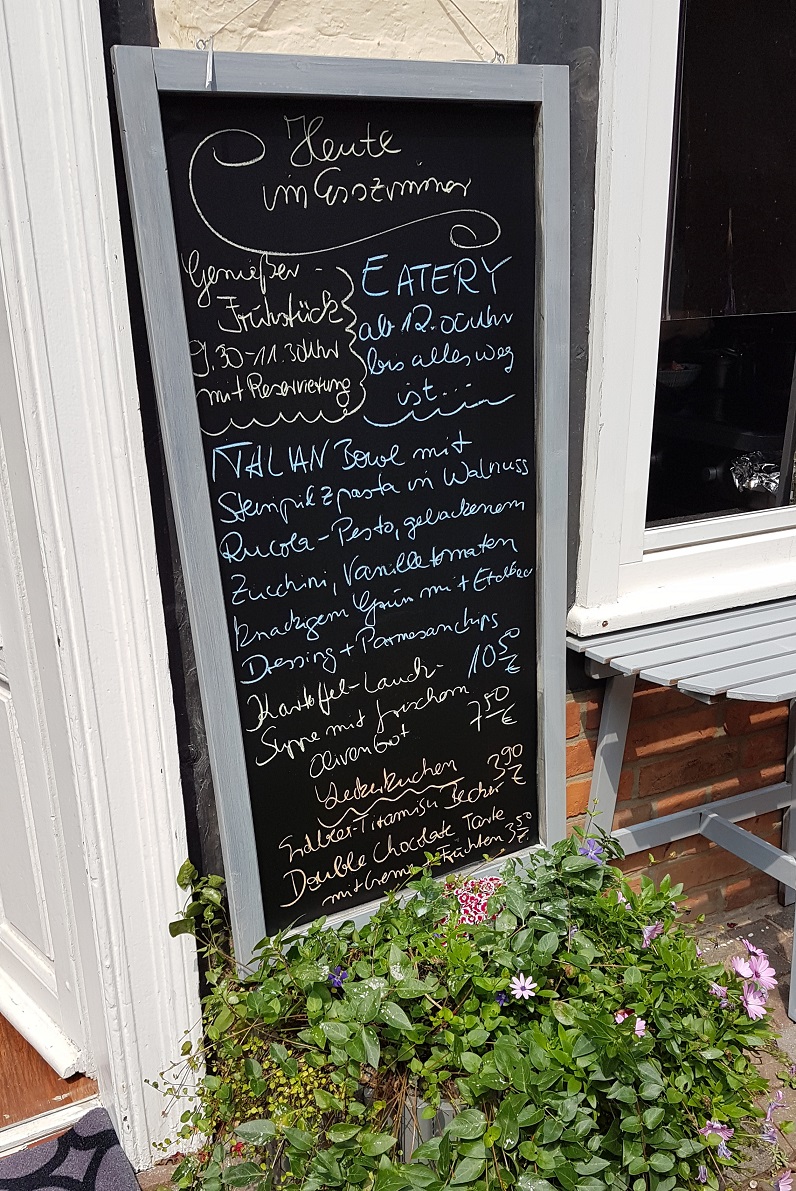 Heute
im Esszimmer
Genießer-
Frühstück
9.30-11.30Uhr
mit Reservierung
EATERY
ab 12.00Uhr
bis alles weg
ist...
ITALIAN Bowl mit
Steinpilzpasta in Walnuss
Rucola-Pesto, gebackenem
Zucchini, Vanilletomaten
knackigem Grün mit Erdbeer
Dressing + Parmesanchips
10 50 €
Kartoffel-Lauch-
Suppe mit frischem
Olivenbrot
7 50 €
Leckerkuchen
Erdbeer-Tiramisu Becher 3 90 €
Double Chocolate Tarte
mit Creme + Früchten 3 50 €